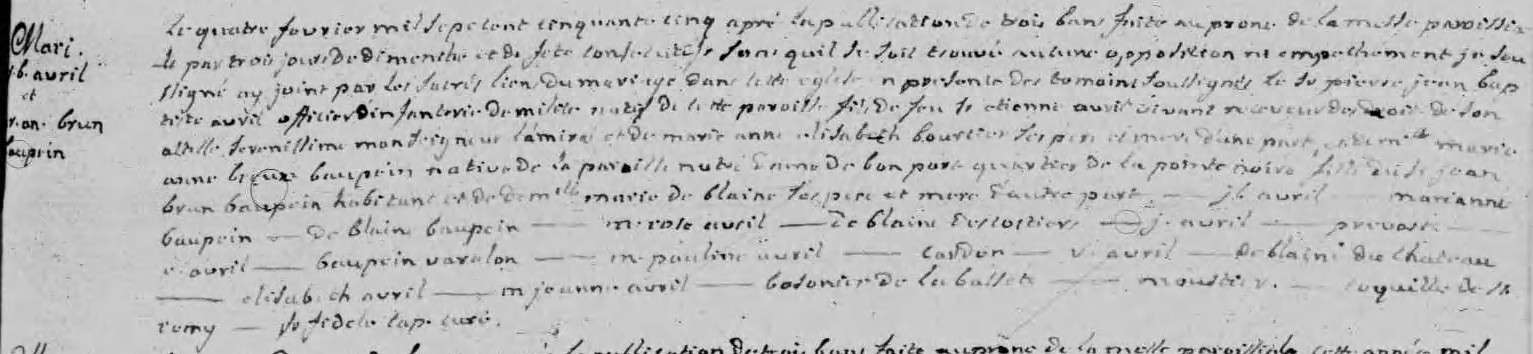 Mari.
j.b. avril
et
mane brun
baupein
Le quatre fevrier mil sept cent cinquante cinq apré la publication de trois bans faite au prone de la messe paroissia
le par trois jours de dimenche et de fete consecutifs sans quil se soit trouvé aucune opposition ni empechement je sou
ssigné ay joint par les sacrés liens du mariage dans cette eglise en presence des temoins soussignés le sr pierre jean bap
tiste avril officier dinfanterie de milice natif de cette paroisse fils de feu sr etienne avril vivant receveur des droits de son
altesse serenissime monseigneur lamiral et de marie anne elisabeth bourtier ses pere et mere dune part, et dem.elle marie
anne brun baupein native de la paroisse notre dame de bon port quartier de la pointe noire fille du sr jean
brun baupein habitant et de dem.elle marie de blaine ses pere et mere dautre part. — j b avril — marianne
baupein — de blaine baupein — m rose avril — de blaine — j. avril — prevost —
v. avril — baupein varalon — m pauline avril — cardon — v. avril — de blaine du chateau
— elisabeth avril — m jeanne avril — de la — moustier. — coquille de st
remy — fr fidele cap. curé.
la publication de trois bans faite au prone de la messe paroissiale cette année mil